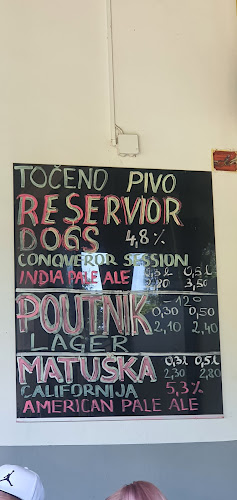 TOČENO PIVO
RESERVIOR
DOGS 4,8%
CONQUEROR SESSION
INDIA PALE ALE 0,3L 0,5L
2,80 3,50
POUTNIK 12°
0,30 0,50
LAGER 2,10 2,40
MATUŠKA 0,3L 0,5L
2,30 2,80
CALIFORNIJA 5,3%
AMERICAN PALE ALE